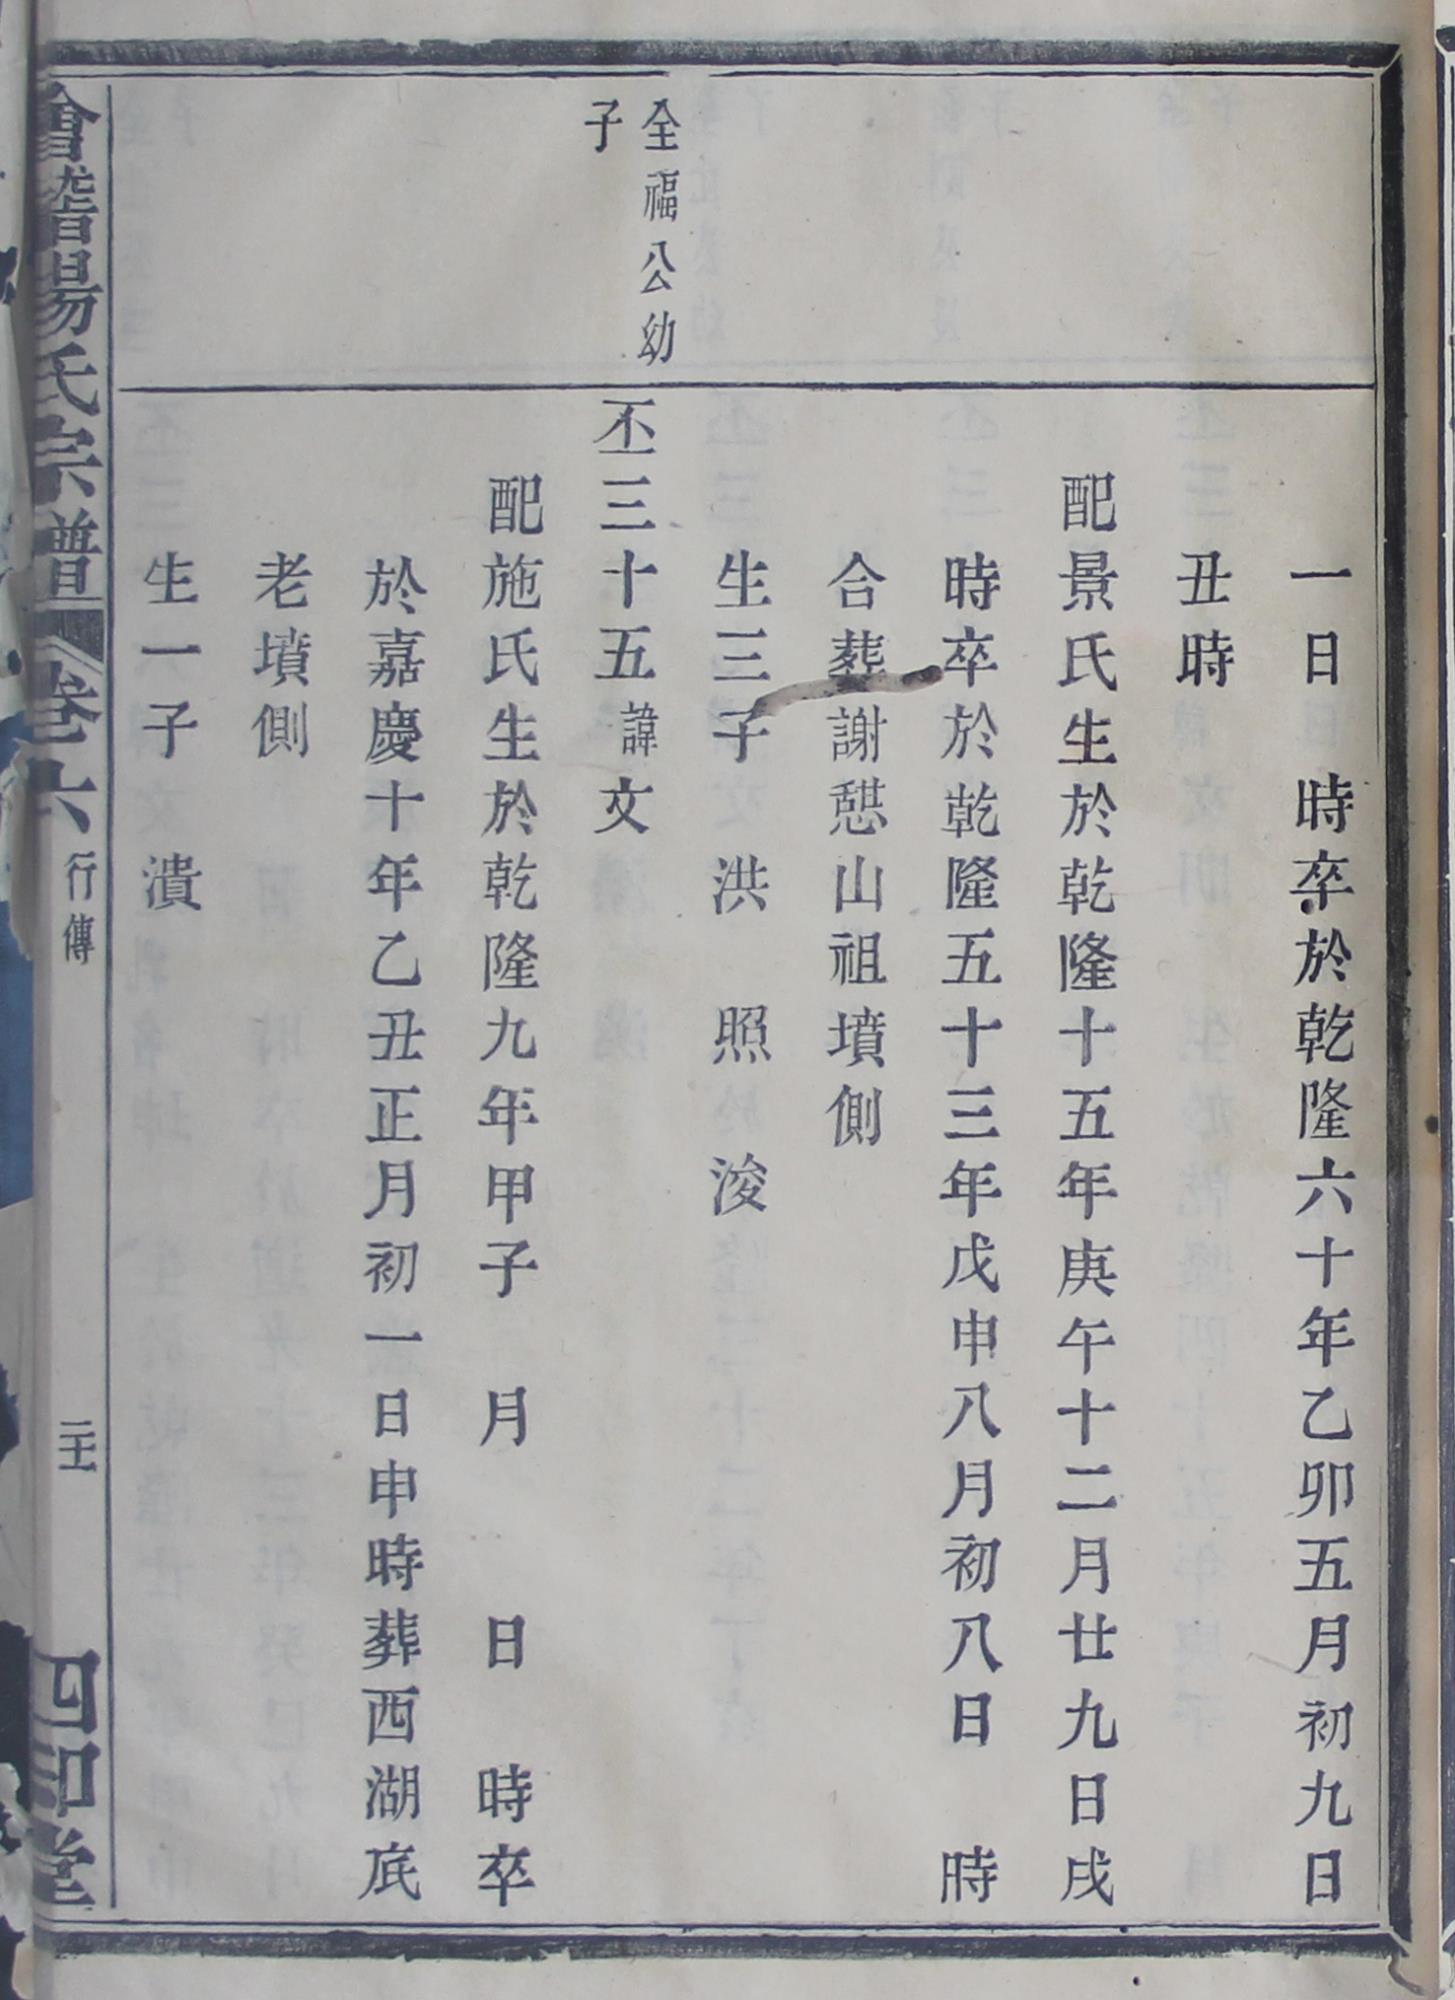 一日　時卒於乾隆六十年乙卯五月初九日
丑時
配景氏生於乾隆十五年庚午十二月廿九日戌
時卒於乾隆五十三年戊申八月初八日　時
合葬謝憇山祖墳側
生三子　洪　照　浚
全福公幼
子
丕三十五諱文
配施氏生於乾隆九年甲子　月　日　時卒
於嘉慶十年乙丑正月初一日申時葬西湖底
老墳側
生一子文　潰
會稽楊氏宗譜　卷六　行傳　二十一　四知堂